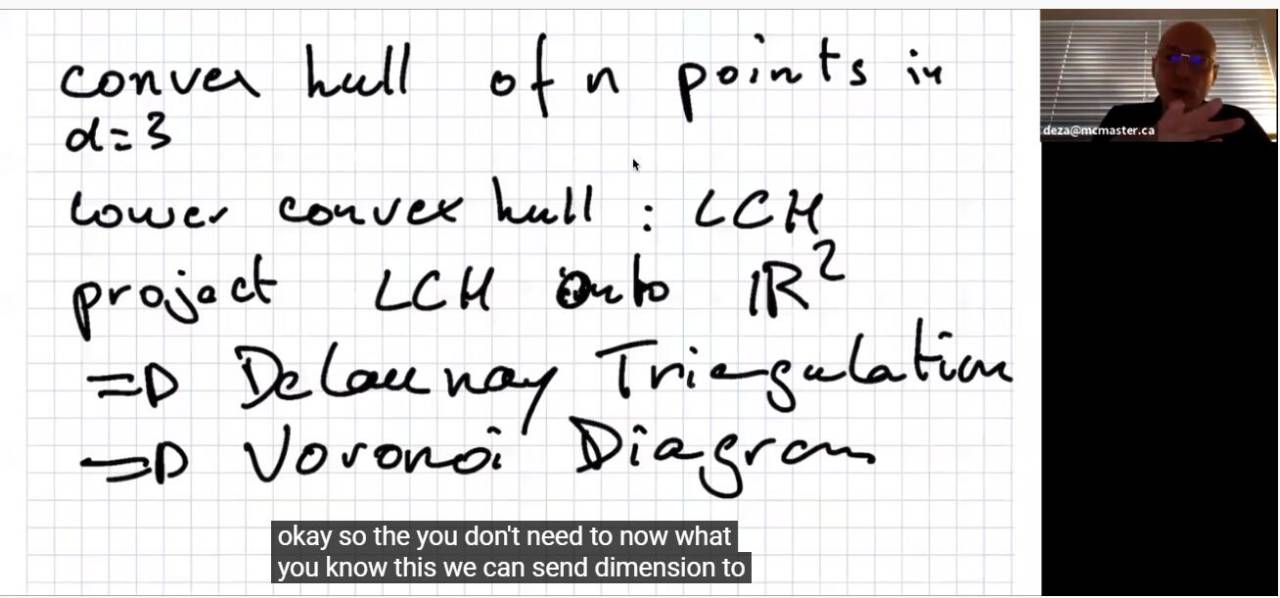 convex hull of n points in
d=3
lower convex hull : LCH
project LCH onto IR²
=D Delaunay Triangulation
=D Voronoi Diagram
deza@mcmaster.ca
okay so the you don't need to now what
you know this we can send dimension to